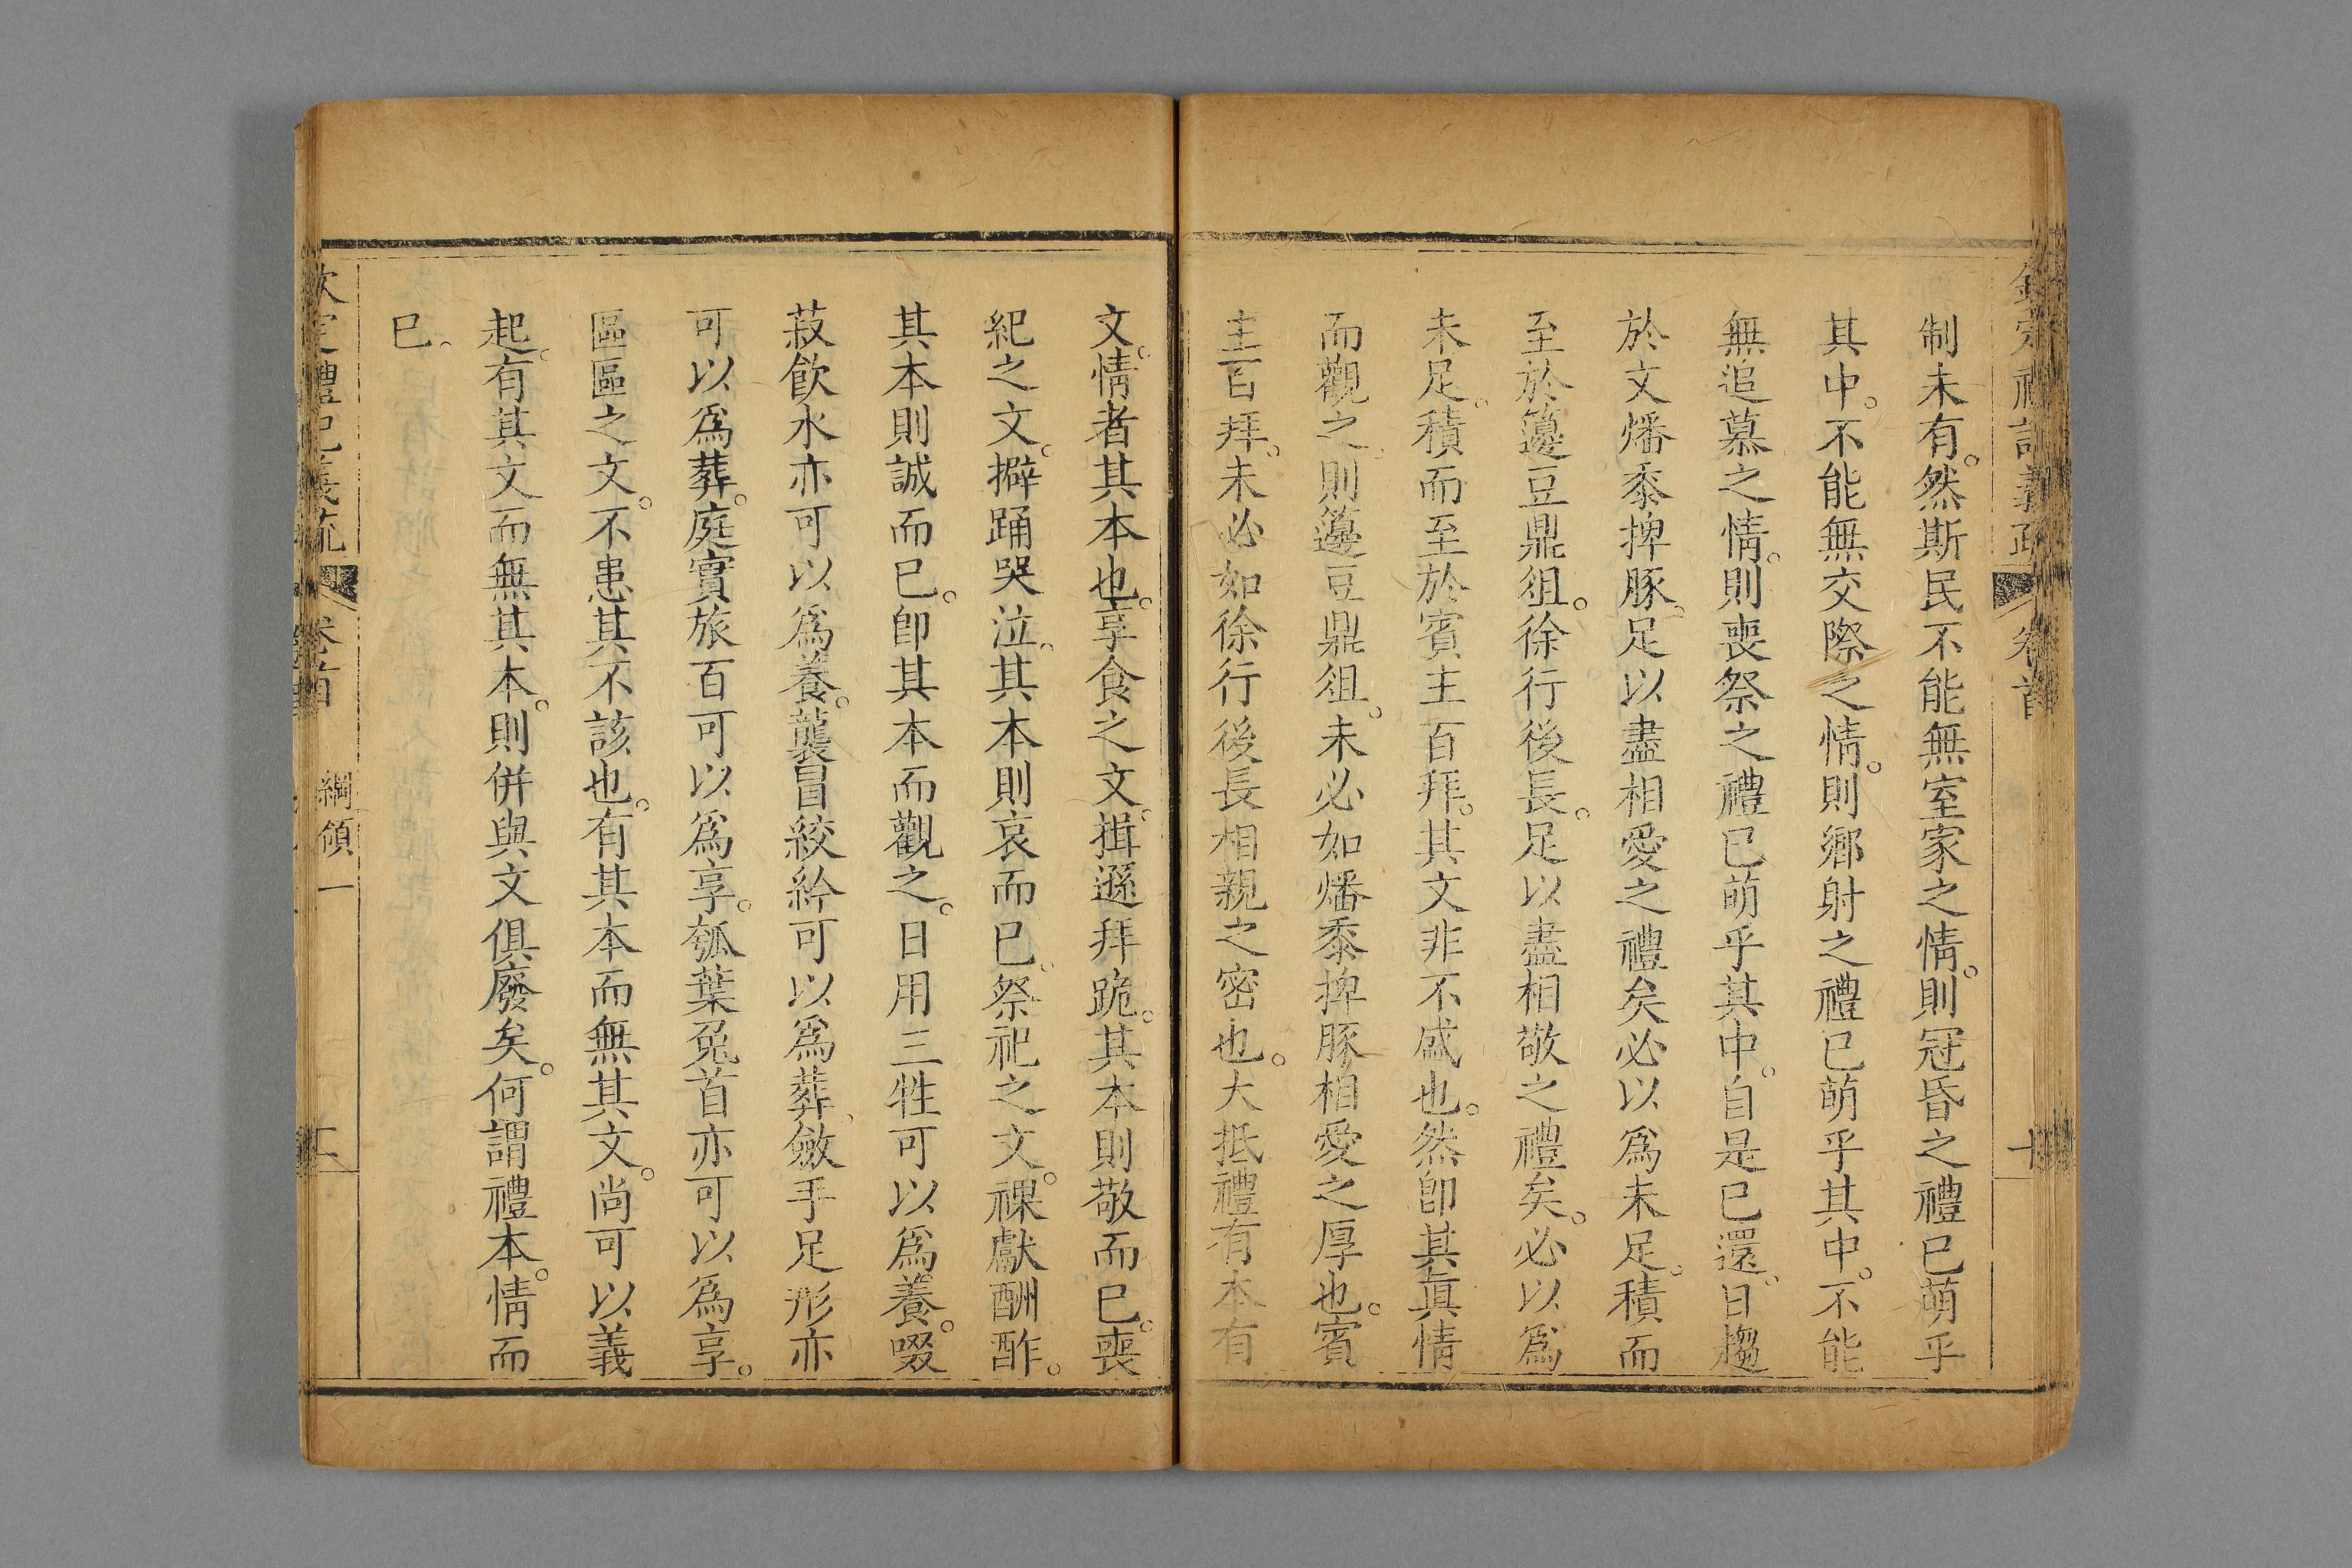 制未有。然斯民不能無室家之情。則冠昏之禮已萌乎
其中。不能無交際之情。則鄉射之禮已萌乎其中。不能
無追慕之情。則喪祭之禮已萌乎其中。自是已還。日趨
於文。燔黍捭豚。足以盡相愛之禮矣必以爲未足。積而
至於籩豆鼎俎。徐行後長。足以盡相敬之禮矣。必以爲
未足。積而至於賓主百拜。其文非不盛也。然卽其眞情
而觀之。則籩豆鼎俎。未必如燔黍捭豚相愛之厚也。賓
主百拜。未必如徐行後長相親之密也。大抵禮有本有
文。情者其本也。享食之文。揖遜拜跪。其本則敬而已。喪
紀之文。擗踊哭泣。其本則哀而已。祭祀之文。祼獻酬酢。
其本則誠而已。卽其本而觀之。日用三牲可以爲養。啜
菽飮水亦可以爲養。襲冒絞紟可以爲葬、斂手足形亦
可以爲葬。庭實旅百可以爲享。瓠葉兔首亦可以爲享。
區區之文。不患其不該也。有其本而無其文。尚可以義
起。有其文而無其本。則併與文俱廢矣。何謂禮本。情而
已。
欽定禮記義疏 卷首 綱領一